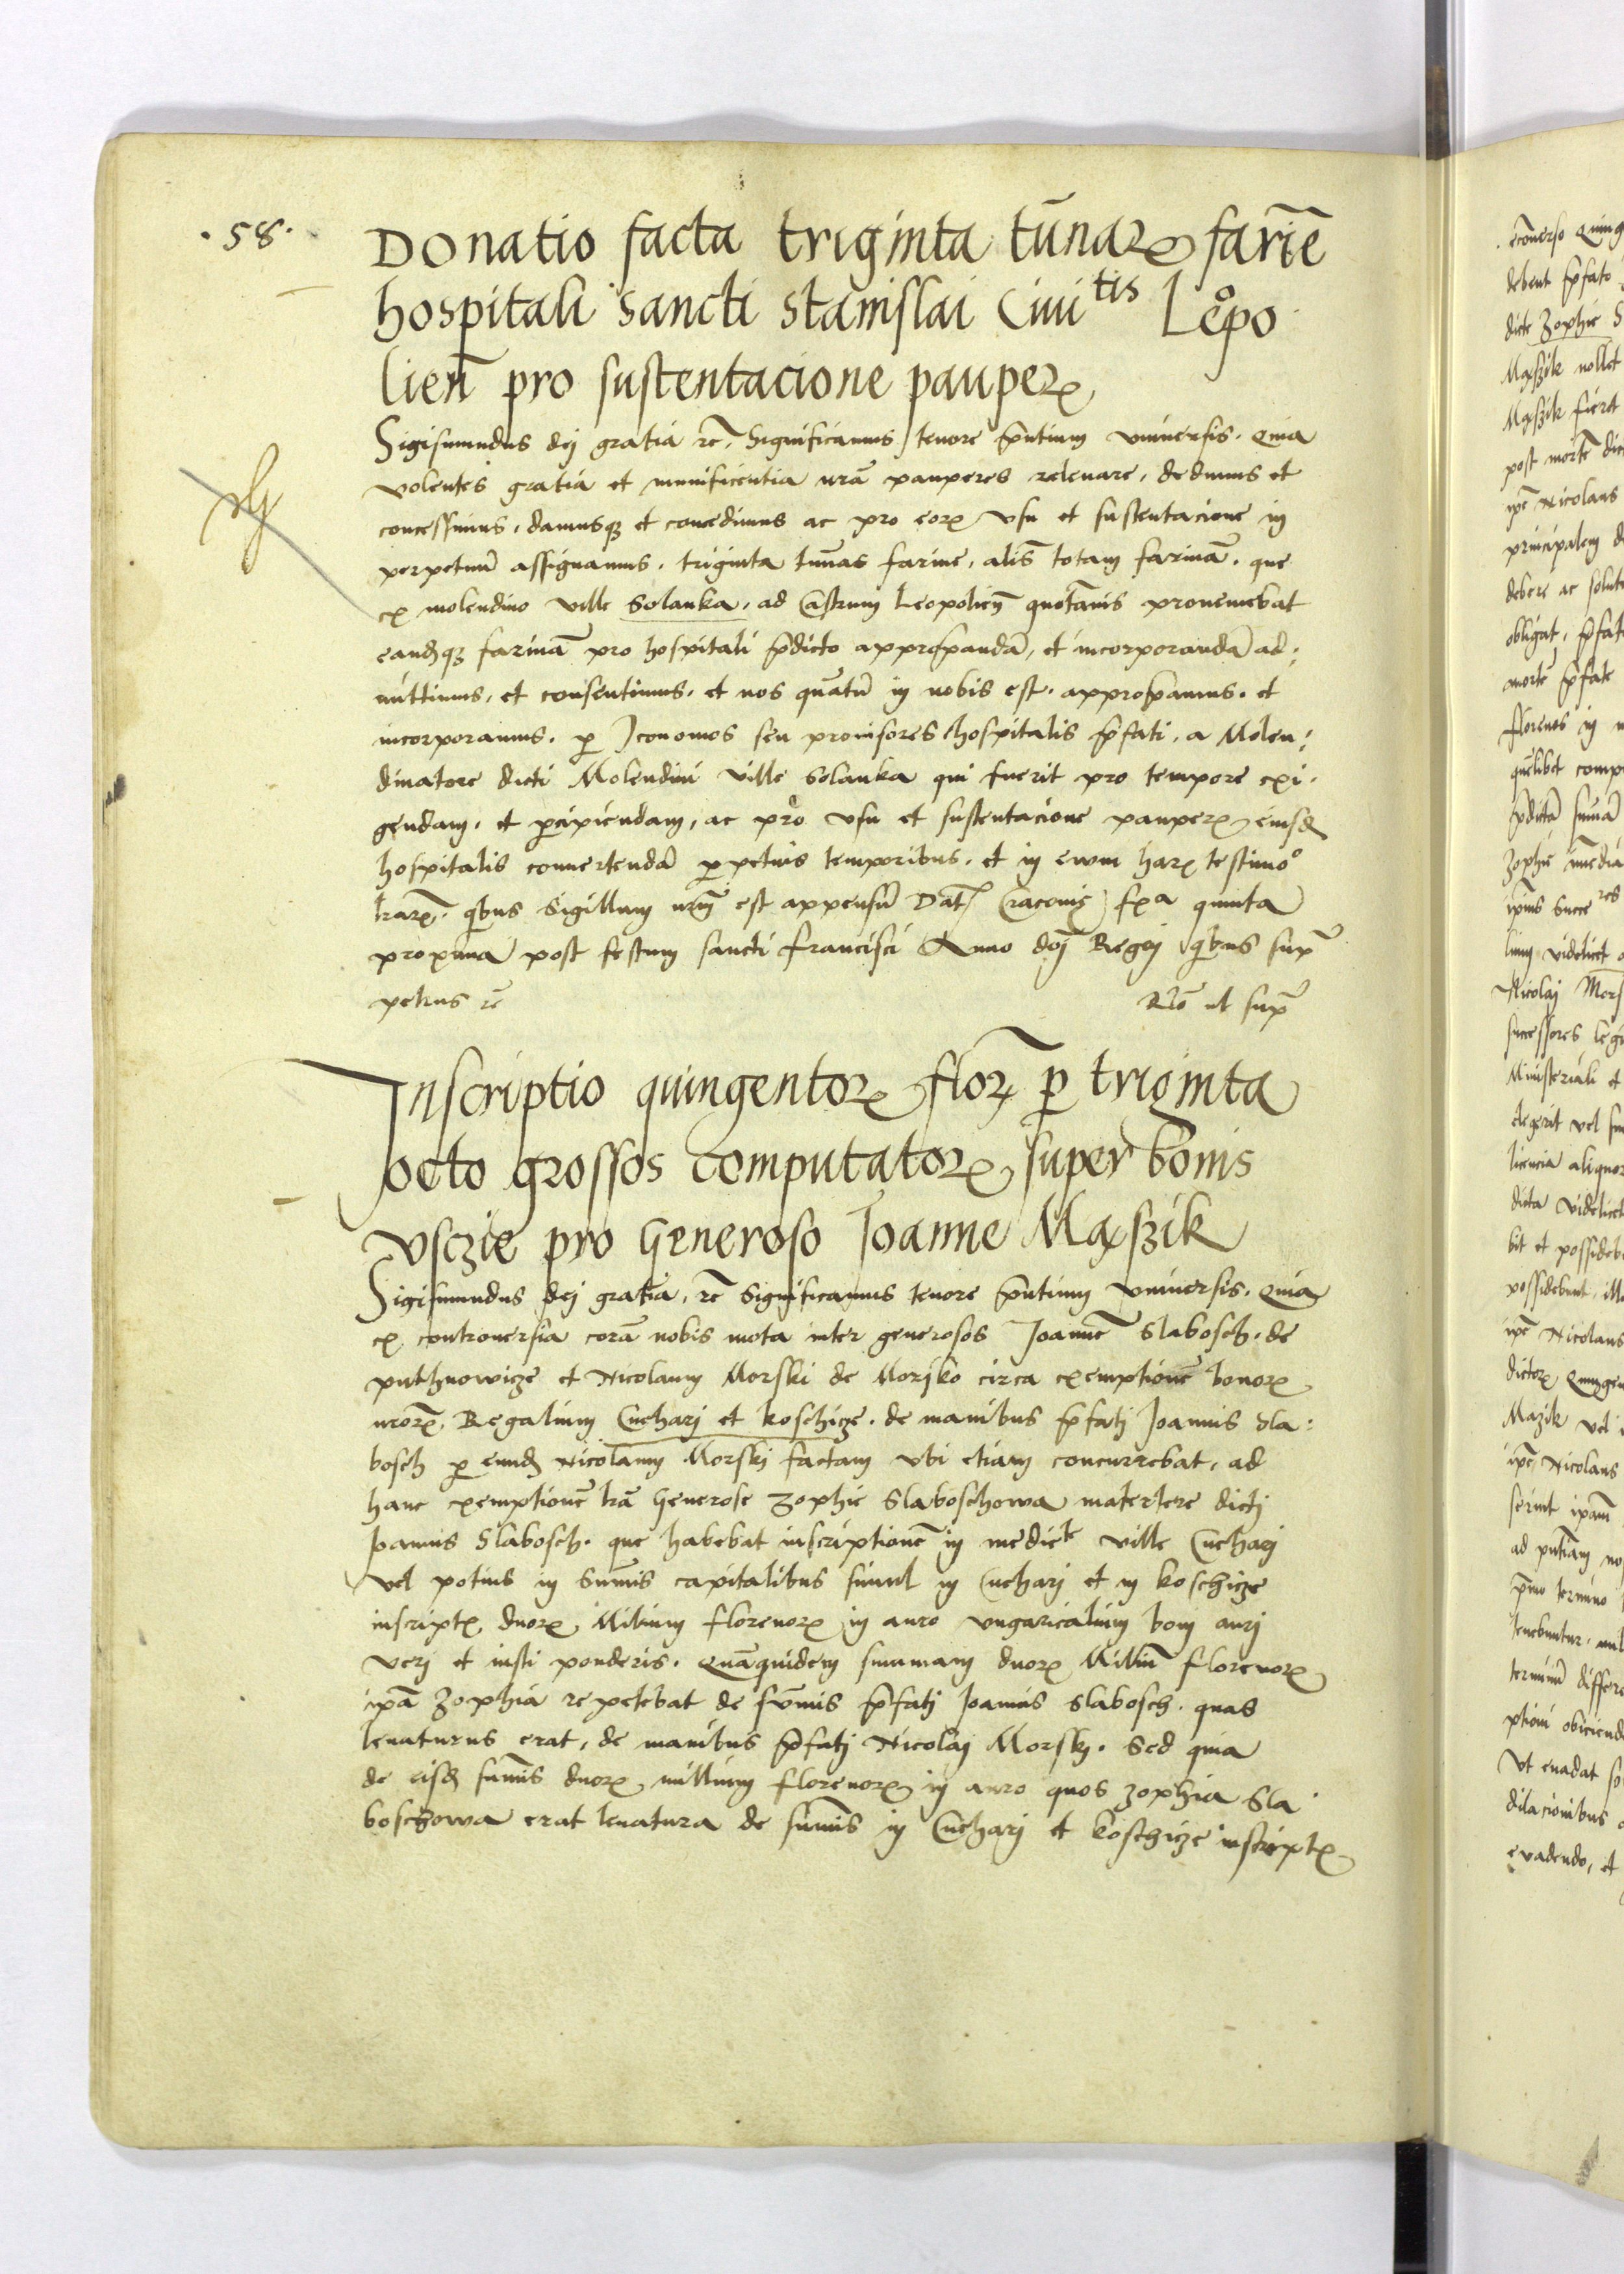 .58.
Donatio facta triginta tūnaꝝ farīe
hospitali sancti stanislai Ciuitis Leopo
lien̄ pro sustentacione pauperꝝ
Sigismundus dej gratia rc̄. Significamus tenore p̄ntium vniuersis. Quia
volentes gratia et munificentia nr̄a pauperes releuare, dedimus et
concessimus, damusqꝫ et concedimus ac pro eorꝝ vsu et sustentacione in
perpetuū assignamus. triginta tunnas farine, alis̄ totam farinā. que
ex molendino ville Solanka, ad Castrum Leopolien̄ quotānis proueniebat
eandqꝫ farinā pro hospitali p̄dicto appropandā, et incorporandā ad:
mittimus, et consentimus, et nos quātū in nobis est. appropamus. et
incorporamus. ꝑ Iconomos seu prouisores hospitalis p̄fati, a Molen:
dinatore dicti Molendini ville Solanka qui fuerit pro tempore exi.
gendam. et ꝑcipiendam, ac pro vsu et sustentacione pauperꝝ eiusd
hospitalis conuertendā ꝑpetuis temporibus. et in ewum harꝝ testimoo
lrarꝝ. qbus Sigillum nrm̄ est appensū Dat Cracouie fxa quinta
proxima post festum sancti francisci Anno dnj Regnj qbus sup̄
petrus rc̄ Rlo ut sup̄
Inscriptio quingentorꝝ florꝝ ꝑ triginta
octo grossos computatorꝝ super bonis
vsczie pro Generoso Ioanne Maxszik
Sigismundus dej gratia, rc̄ Significamus tenore p̄ntium vniuersis. Quia
ex controuersia corā nobis mota inter generosos Joannē Slabosch. de
puthnowicze et Nicolaum Morski de Morsko circa exemptionē bonorꝝ
nrorꝝ Regalium Cucharj et koschicze. de manibus p̄fatj Joannis Sla:
bosch ꝑ eund Nicolaum Morskj factam vbi etiam concurrebat, ad
hanc exemptionē lrā Generose Zophie Slaboschowa matertere dictj
Joannis Slabosch. que habebat inscriptionē in mediete ville Cucharj
vel potius in Summis capitalibus simul in Cucharj et in koschicze
inscriptꝭ duorꝝ Milium florenorꝝ in auro vngaricalium bonj aurj
verj et iusti ponderis. Quāquidem summam duorꝝ Milliū florenorꝝ
ipā Zophia repetebat de sūmis p̄fatj Joannis Slabosch. quas
leuaturus erat, de manibus p̄fatj Nicolaj Morskj. Sed quia
de eisd sūmis duorꝝ millium florenorꝝ in auro quos Zophia Sla
boschowa erat leuatura de sūmis in Cucharj et koschicze inscriptꝭ